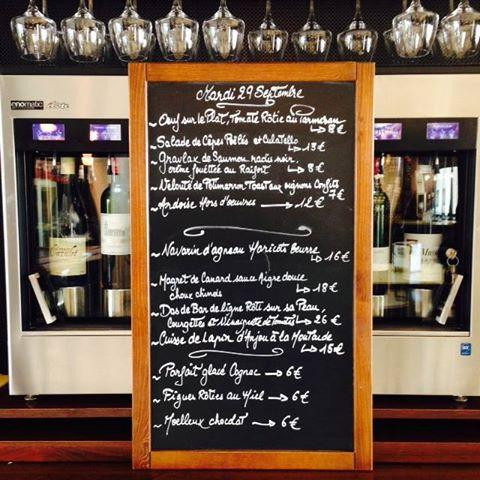 Mardi 29 Septembre
~ Oeuf sur le Plat, Tomate Rotie au Parmesan
↳ 8 €
~ Salade de Cèpes Poêlés et Culatello
↳ 15 €
~ Gravlax de Saumon radis noir,
crème fouettée au Raifort ↳ 8 €
~ Velouté de Potimarron, Toast aux oignons Confits
7 €
~ Ardoise Hors d'oeuvres → 12 €
~ Navarin d'agneau Haricots beurre
↳ 16 €
~ Magret de Canard sauce Aigre douce
choux chinois ↳ 18 €
~ Dos de Bar de Ligne Rôti sur sa Peau,
Courgettes et Vinaigrette de Tomates ↳ 26 €
~ Cuisse de Lapin d'Anjou à la Moutarde
↳ 15 €
~ Parfait glacé Cognac → 6 €
~ Figues Roties au Miel → 6 €
~ Moelleux chocolat → 6 €
enomatic